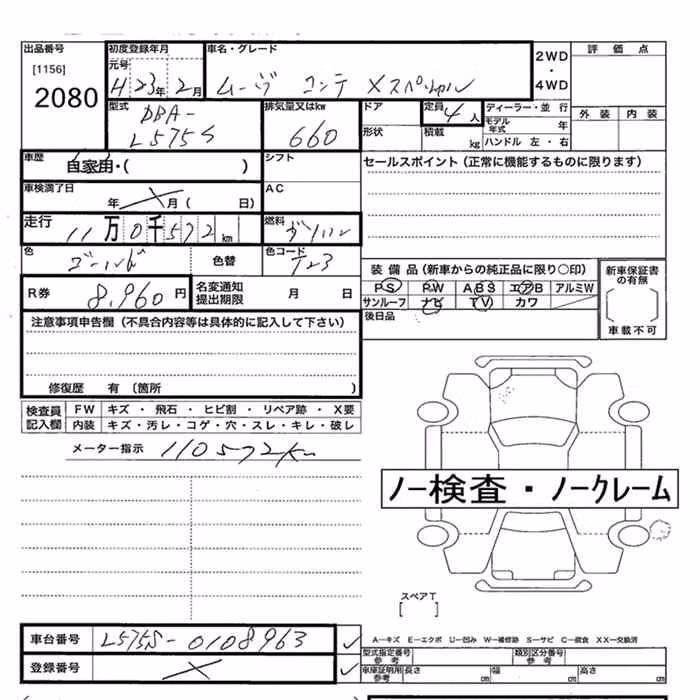 出品番号 初度登録年月 車名・グレード 2WD・4WD 評価点
[1156] 元号
2080 H 23年 2月 ムーヴ コンテ Xスペシャル
型式 排気量又はkw ドア 定員 4人 ディーラー・並行 外装 内装
DBA- モデル年式 年
L575S 660 形状 積載 kg ハンドル 左・右
車歴 自家用・( ) シフト セールスポイント(正常に機能するものに限ります)
車検満了日 年 月( 日) AC
走行 11万0千572km 燃料 ガソリン
色 ゴールド 色替 色コード T23
装備品(新車からの純正品に限り〇印) 新車保証書の有無
R券 8,960円 名変通知提出期限 月 日 PS PW ABS エアB アルミW
サンルーフ ナビ TV カワ
注意事項申告欄(不具合内容等は具体的に記入して下さい) 後日品 車載不可
修復歴 有 〔箇所 〕
検査員記入欄 FW キズ・飛石・ヒビ割・リペア跡・X要
内装 キズ・汚レ・コゲ・穴・スレ・キレ・破レ
メーター指示 110572km
ノー検査・ノークレーム
スペアT
[ ]
車台番号 L575S-0108963
A-キズ E-エクボ U-凹み W-補修跡 S-サビ C-腐食 XX-交換済
登録番号
型式指定番号 参考 類別区分番号 参考
車庫証明用参考 長さ cm 幅 cm 高さ cm